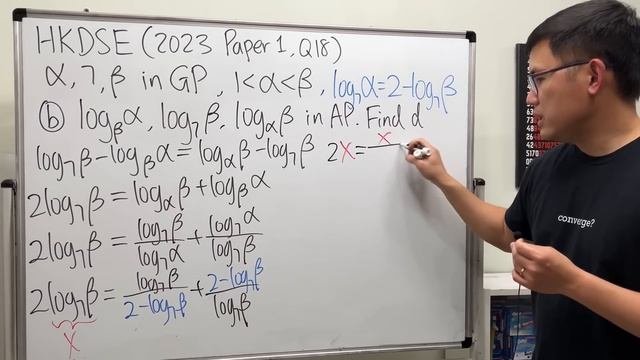 HKDSE (2023 Paper 1, Q18)
α, 7, β in GP, 1<α<β, log₇α=2-log₇β
ⓑ log_βα, log₇β, log_αβ in AP. Find d
log₇β-log_βα=log_αβ-log₇β 2x=x/
2log₇β=log_αβ+log_βα
2log₇β=log₇β/log₇α+log₇α/log₇β
2log₇β=log₇β/(2-log₇β)+(2-log₇β)/log₇β
x
converge?